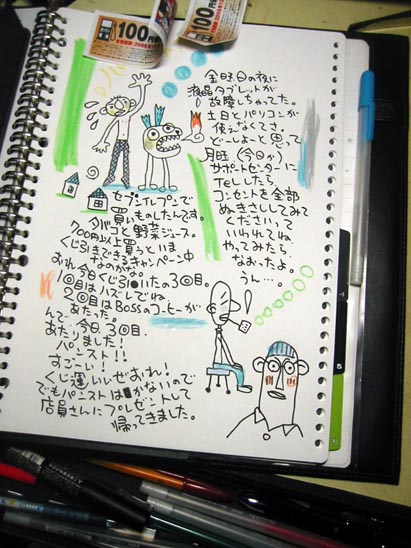 100円
100円
金曜日の夜に
液晶タブレットが
故障しちゃってた。
土日とパソコンが
使えなくてさ。
どーしよーと思って
月曜(今日か)
サポートセンターに
Telしたら、
コンセントを全部
ぬきさししてみて
くださいって
いわれてね、
やってみたら
なおったよ。
うん…。
セブンイレブンで
買いものしたんです。
タバコと野菜ジュース。
700円以上買うといま
くじ引きできるキャンペーン中
なのかな。
おれ今日くじ引いたの3回目。
1回目はハズレでね、
2回目はBossのコーヒーが
あたった。
んで、今日3回目、
あたりました!
パニスト!!
すごーい!
くじ運いいぜおれ!
でもパニストはかないので
店員さんにプレゼントして
帰ってきました。